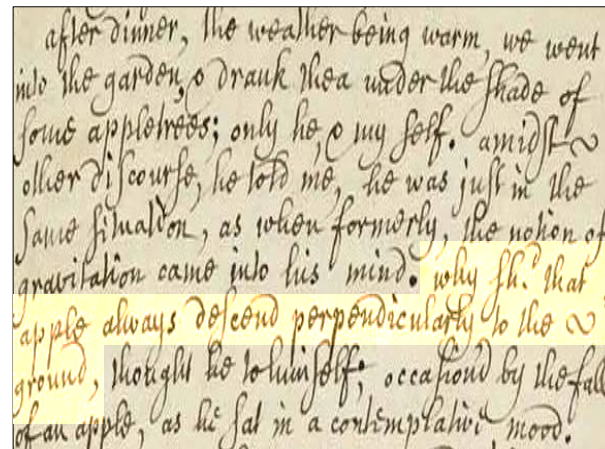 after dinner, the weather being warm, we went
into the garden, & drank thea under the shade of
some appletrees; only he, & my self. amidst
other discourse, he told me, he was just in the
same situation, as when formerly, the notion of
gravitation came into his mind. why sh.^d that
apple always descend perpendicularly to the
ground, thought he to himself; occasion'd by the fall
of an apple, as he sat in a contemplative mood.